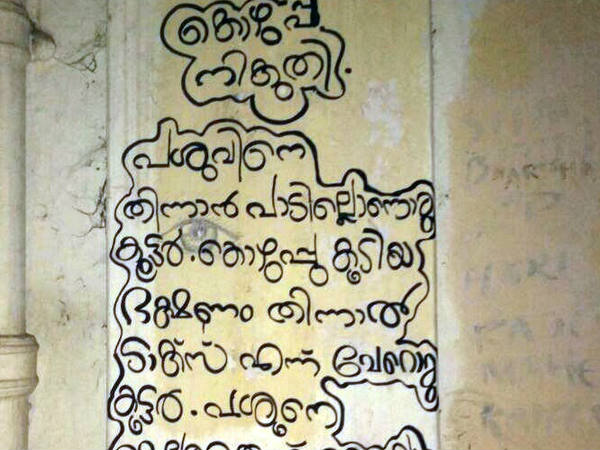 കൊഴുപ്പ്
നികുതി.
പശുവിനെ
തിന്നാൻ പാടില്ലൊന്നൊരു
കൂട്ടർ. കൊഴുപ്പു കൂടിയ
ഭക്ഷണം തിന്നാൽ
ടാക്സ് എന്ന് വേറൊരു
കൂട്ടർ. പശൂനെ